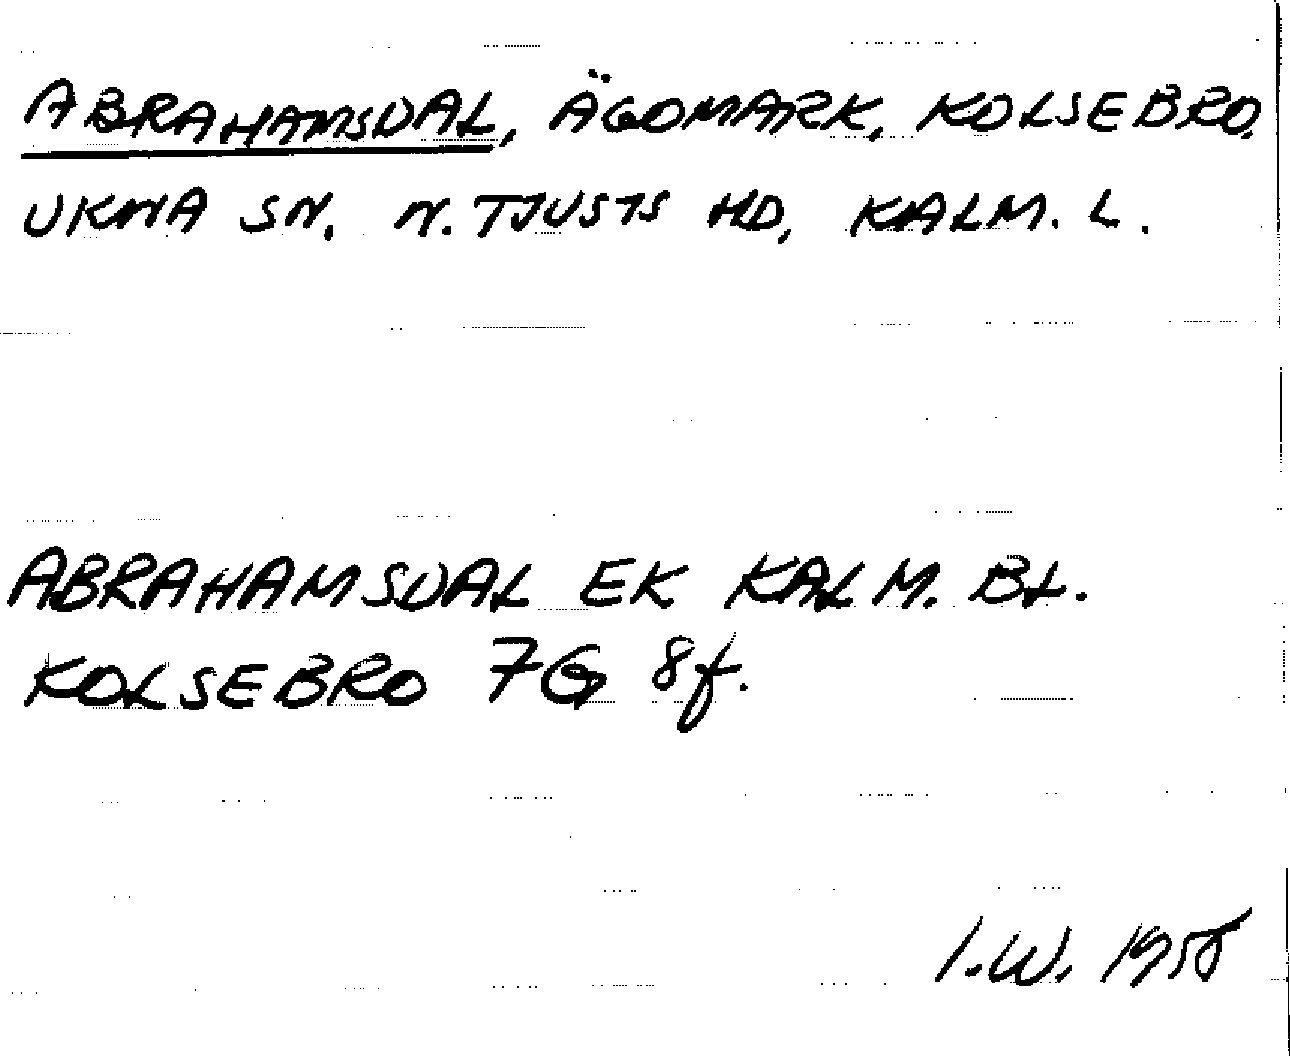 ABRAHAMSDAL, ÄGOMARK, KOLSEBRO,
UKNA SN. N. TJUSTS HD, KALM. L.
ABRAHAMSDAL EK KALM. BL.
KOLSEBRO 7G 8f.
I.W.